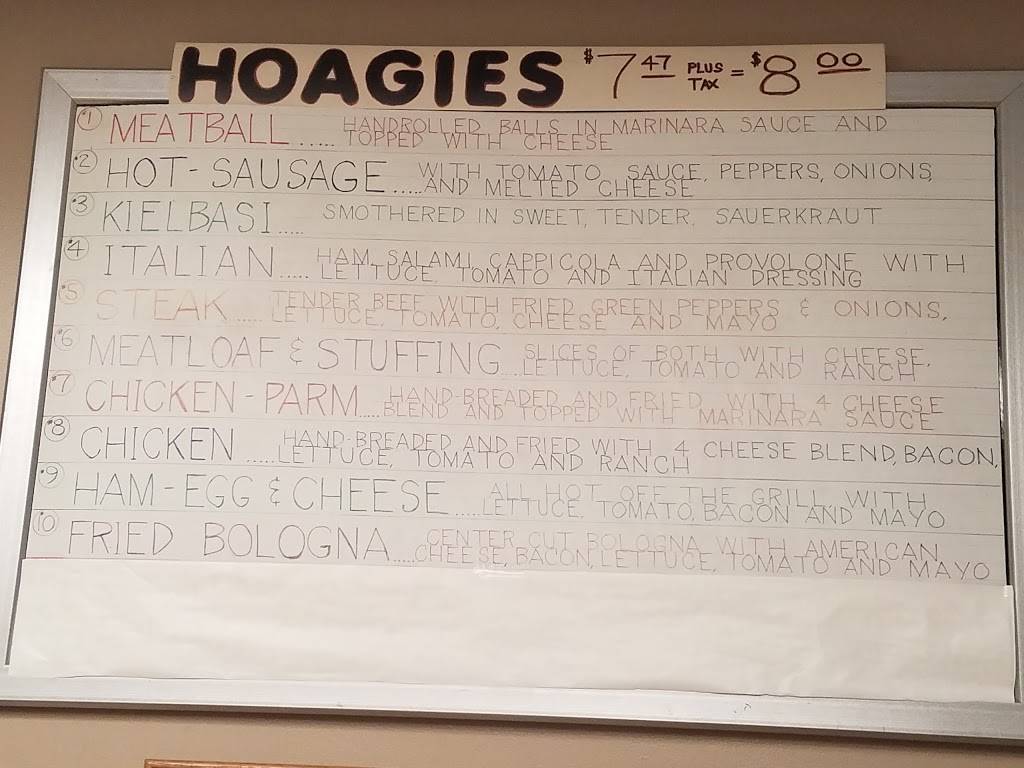 HOAGIES $7.47 PLUS TAX = $8.00
#1 MEATBALL ..... HANDROLLED BALLS IN MARINARA SAUCE AND
TOPPED WITH CHEESE
#2 HOT-SAUSAGE ..... WITH TOMATO SAUCE, PEPPERS, ONIONS,
AND MELTED CHEESE
#3 KIELBASI ..... SMOTHERED IN SWEET, TENDER, SAUERKRAUT
#4 ITALIAN ..... HAM, SALAMI, CAPPICOLA AND PROVOLONE WITH
LETTUCE, TOMATO AND ITALIAN DRESSING
#5 STEAK ..... TENDER BEEF WITH FRIED GREEN PEPPERS & ONIONS,
LETTUCE, TOMATO, CHEESE AND MAYO
#6 MEATLOAF & STUFFING .... SLICES OF BOTH WITH CHEESE,
LETTUCE, TOMATO AND RANCH
#7 CHICKEN-PARM ..... HAND-BREADED AND FRIED WITH 4 CHEESE
BLEND AND TOPPED WITH MARINARA SAUCE
#8 CHICKEN ..... HAND-BREADED AND FRIED WITH 4 CHEESE BLEND, BACON,
LETTUCE, TOMATO AND RANCH
#9 HAM-EGG & CHEESE ..... ALL HOT OFF THE GRILL WITH
LETTUCE, TOMATO, BACON AND MAYO
#10 FRIED BOLOGNA ..... CENTER CUT BOLOGNA WITH AMERICAN
CHEESE, BACON, LETTUCE, TOMATO AND MAYO